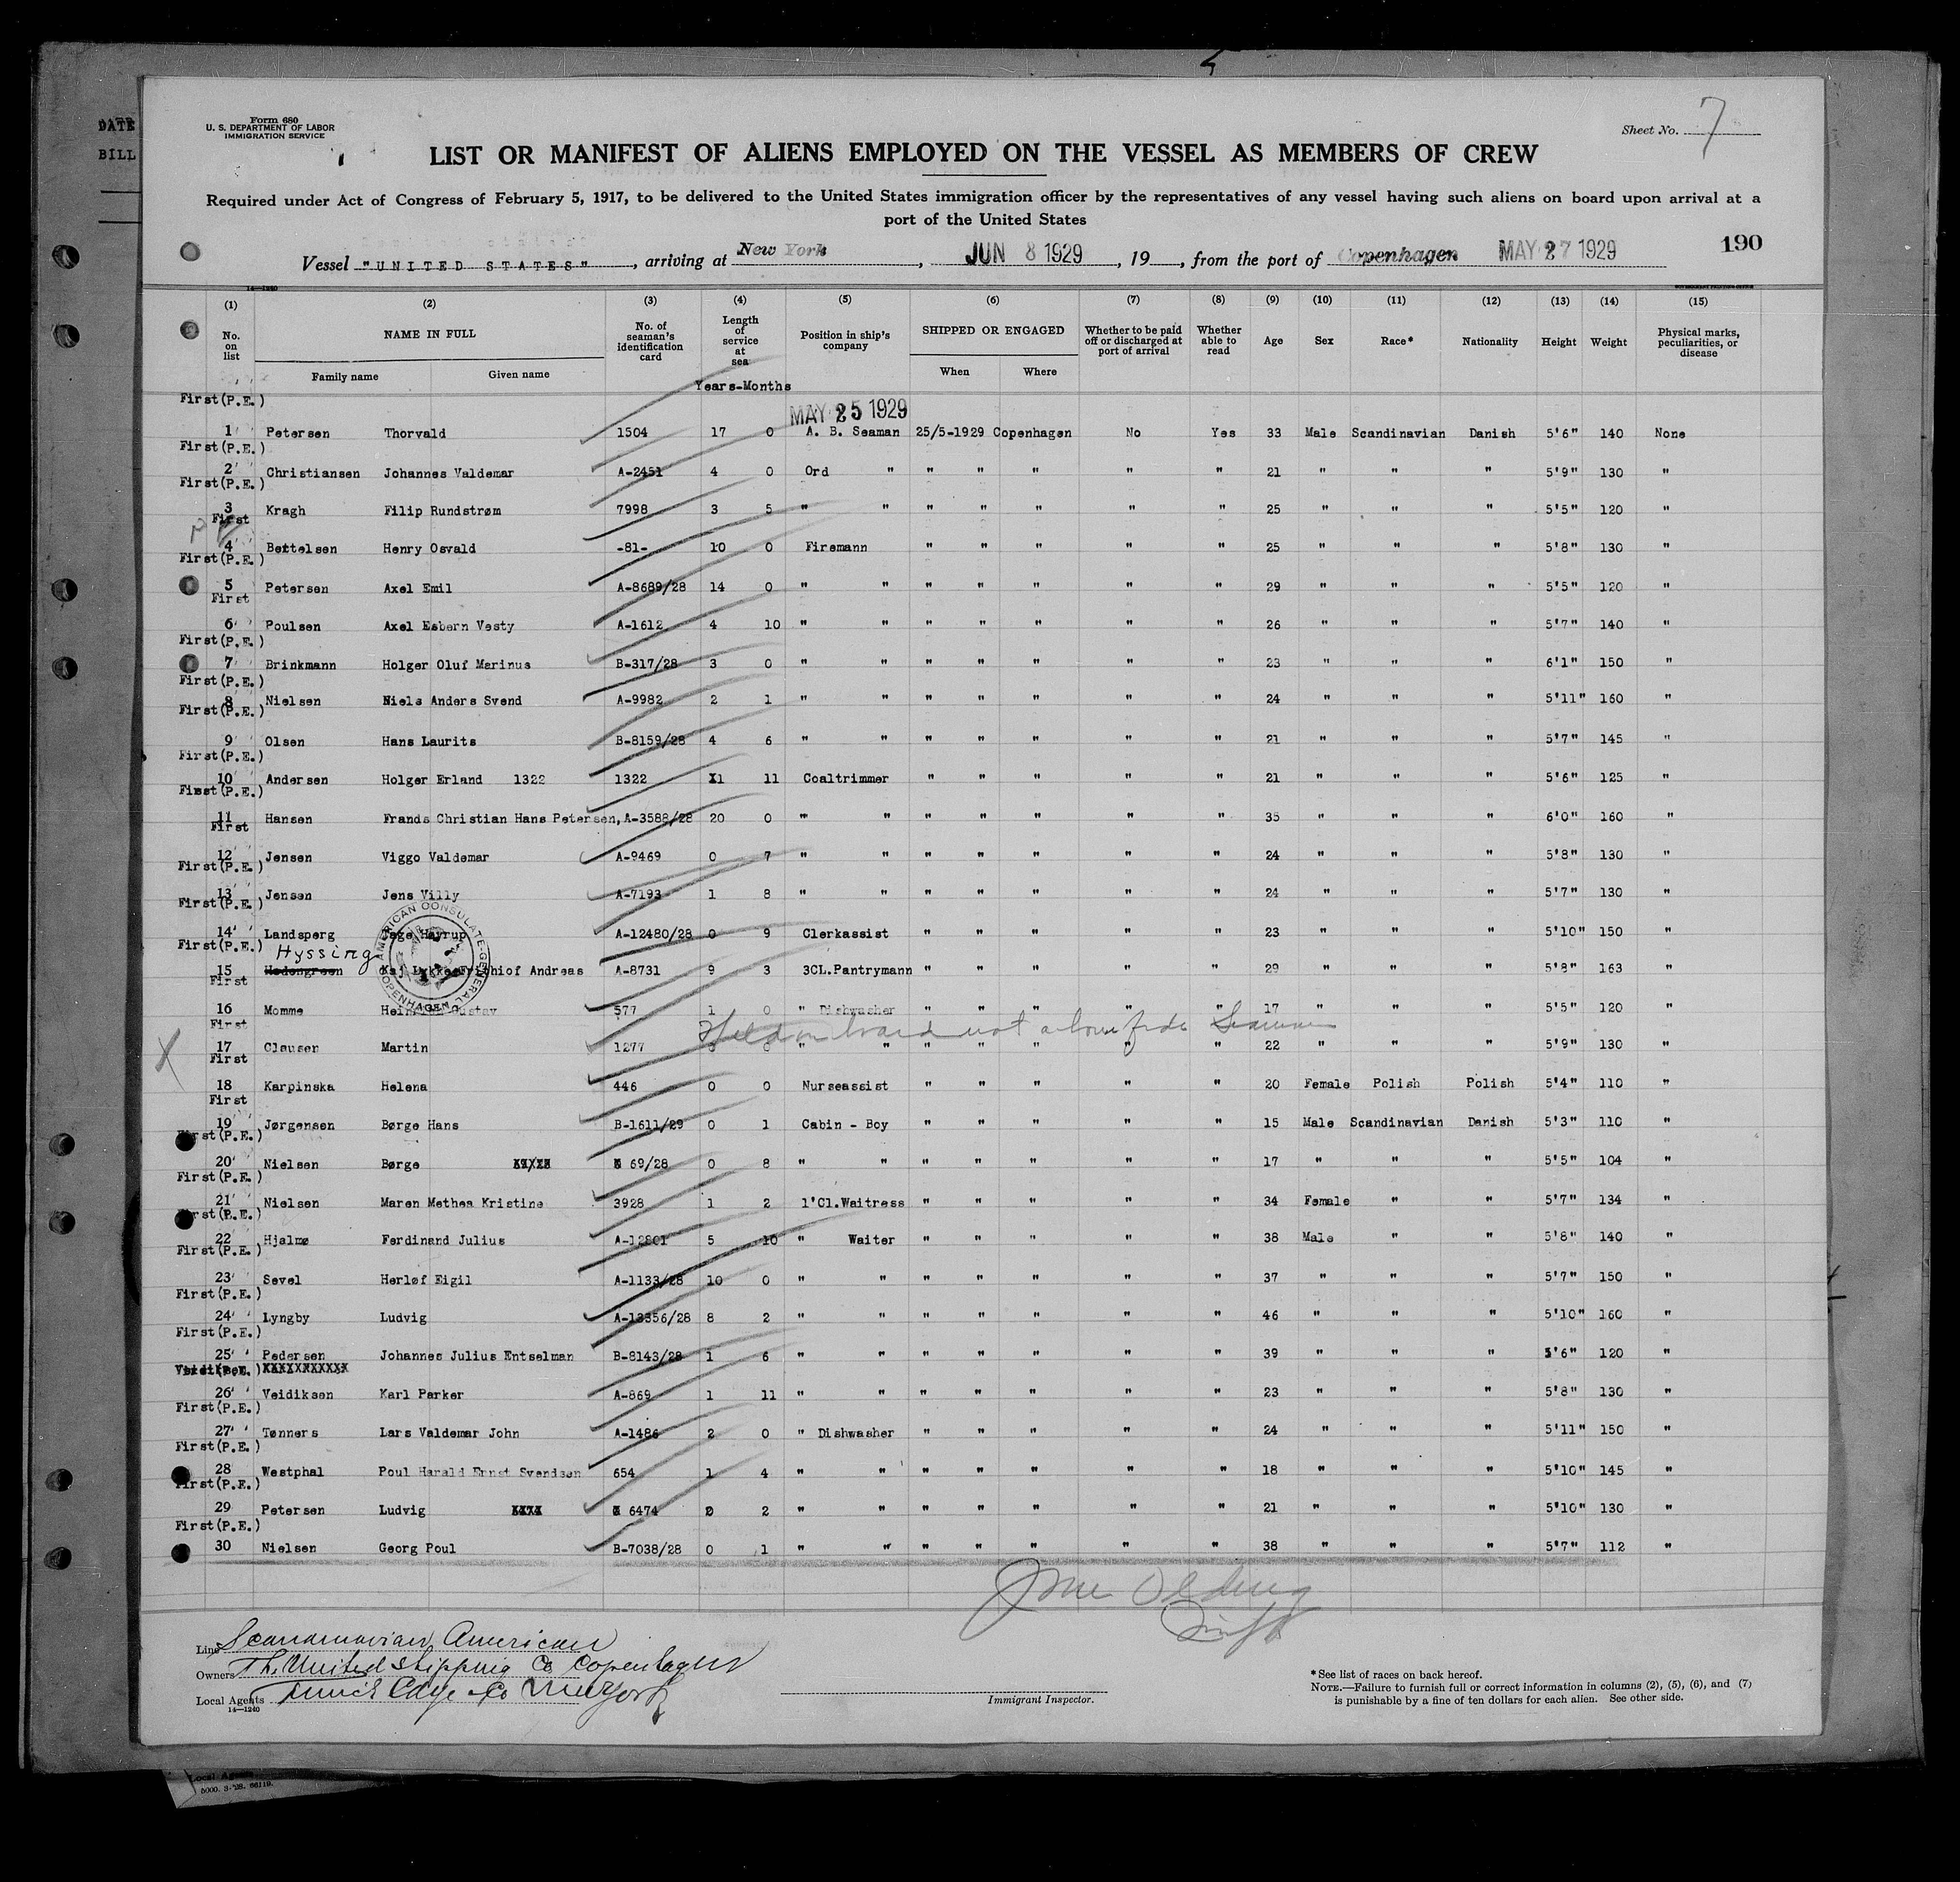 DATE
BILL
Form 680
U. S. DEPARTMENT OF LABOR
IMMIGRATION SERVICE
Sheet No. 7
LIST OR MANIFEST OF ALIENS EMPLOYED ON THE VESSEL AS MEMBERS OF CREW
Required under Act of Congress of February 5, 1917, to be delivered to the United States immigration officer by the representatives of any vessel having such aliens on board upon arrival at a
port of the United States
190
Vessel "UNITED STATES", arriving at New York, JUN 8 1929, 19 , from the port of Copenhagen MAY 27 1929
14—1240
(1) (2) (3) (4) (5) (6) (7) (8) (9) (10) (11) (12) (13) (14) (15)
No. on list NAME IN FULL Family name Given name No. of seaman's identification card Length of service at sea Position in ship's company SHIPPED OR ENGAGED When Where Whether to be paid off or discharged at port of arrival Whether able to read Age Sex Race* Nationality Height Weight Physical marks, peculiarities, or disease
Years-Months
First(P.E.)
MAY 25 1929
1 Petersen Thorvald 1504 17 0 A. B. Seaman 25/5-1929 Copenhagen No Yes 33 Male Scandinavian Danish 5'6" 140 None
First(P.E.)
2 Christiansen Johannes Valdemar A-2451 4 0 Ord " " " " " " 21 " " " 5'9" 130 "
First(P.E.)
3 Kragh Filip Rundstrøm 7998 3 5 " " " " " " " 25 " " " 5'5" 120 "
First
4 Bettelsen Henry Osvald -81- 10 0 Firemann " " " " " 25 " " " 5'8" 130 "
First(P.E.)
5 Petersen Axel Emil A-8689/28 14 0 " " " " " " " 29 " " " 5'5" 120 "
First
6 Poulsen Axel Esbern Vesty A-1612 4 10 " " " " " " " 26 " " " 5'7" 140 "
First(P.E.)
7 Brinkmann Holger Oluf Marinus B-317/28 3 0 " " " " " " " 23 " " " 6'1" 150 "
First(P.E.)
8 Nielsen Niels Anders Svend A-9982 2 1 " " " " " " " 24 " " " 5'11" 160 "
First(P.E.)
9 Olsen Hans Laurits B-8159/28 4 6 " " " " " " " 21 " " " 5'7" 145 "
First(P.E.)
10 Andersen Holger Erland 1322 1322 1 11 Coaltrimmer " " " " " 21 " " " 5'6" 125 "
First(P.E.)
11 Hansen Frands Christian Hans Petersen, A-3588/28 20 0 " " " " " " " 35 " " " 6'0" 160 "
First
12 Jensen Viggo Valdemar A-9469 0 7 " " " " " " " 24 " " " 5'8" 130 "
First(P.E.)
13 Jensen Jens Villy A-7193 1 8 " " " " " " " 24 " " " 5'7" 130 "
First(P.E.)
14 Landsperg Høyrup A-12480/28 0 9 Clerkassist " " " " " 23 " " " 5'10" 150 "
First(P.E.) Hyssing
AMERICAN CONSULATE-GENERAL COPENHAGEN
15 Kaj Lykke Frithiof Andreas A-8731 9 3 3CL.Pantrymann " " " " " 29 " " " 5'8" 163 "
First
16 Momme Gustav 577 1 0 " Dishwasher " " " " " 17 " " " 5'5" 120 "
First
Held on board not a bona fide Seaman
X 17 Clausen Martin 1277 " " " " " " " 22 " " " 5'9" 130 "
First
18 Karpinska Helena 446 0 0 Nurseassist " " " " " 20 Female Polish Polish 5'4" 110 "
First
19 Jørgensen Børge Hans B-1611/29 0 1 Cabin - Boy " " " " " 15 Male Scandinavian Danish 5'3" 110 "
First(P.E.)
20 Nielsen Børge 69/28 0 8 " " " " " " " 17 " " " 5'5" 104 "
First(P.E.)
21 Nielsen Maren Methea Kristine 3928 1 2 1'Cl.Waitress " " " " " 34 Female " " 5'7" 134 "
First(P.E.)
22 Hjalmø Ferdinand Julius A-12801 5 10 " Waiter " " " " " 38 Male " " 5'8" 140 "
First(P.E.)
23 Sevel Herløf Eigil A-1133/28 10 0 " " " " " " " 37 " " " 5'7" 150 "
First(P.E.)
24 Lyngby Ludvig A-13356/28 8 2 " " " " " " " 46 " " " 5'10" 160 "
First(P.E.)
25 Pedersen Johannes Julius Entselman B-8143/28 1 6 " " " " " " " 39 " " " 5'6" 120 "
XXXXXXXXXXX
26 Veidiksen Karl Parker A-869 1 11 " " " " " " " 23 " " " 5'8" 130 "
First(P.E.)
27 Tønners Lars Valdemar John A-1486 2 0 " Dishwasher " " " " " 24 " " " 5'11" 150 "
First(P.E.)
28 Westphal Poul Harald Ernst Svendsen 654 1 4 " " " " " " " 18 " " " 5'10" 145 "
First(P.E.)
29 Petersen Ludvig 6474 0 2 " " " " " " " 21 " " " 5'10" 130 "
First(P.E.)
30 Nielsen Georg Poul B-7038/28 0 1 " " " " " " " 38 " " " 5'7" 112 "
Line Scandinavian American
Owners The United Shipping Co Copenhagen
Local Agents Funch Edye Co New York
14—1240
Immigrant Inspector.
*See list of races on back hereof.
NOTE.—Failure to furnish full or correct information in columns (2), (5), (6), and (7)
is punishable by a fine of ten dollars for each alien. See other side.
Local Agents
5000. 3-'28. 66119.